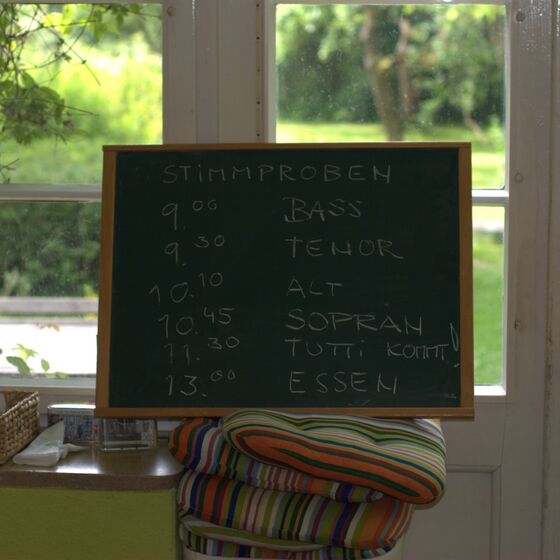 STIMMPROBEN
9.00 BASS
9.30 TENOR
10.10 ALT
10.45 SOPRAN
11.30 TUTTI KOMMT!
13.00 ESSEN